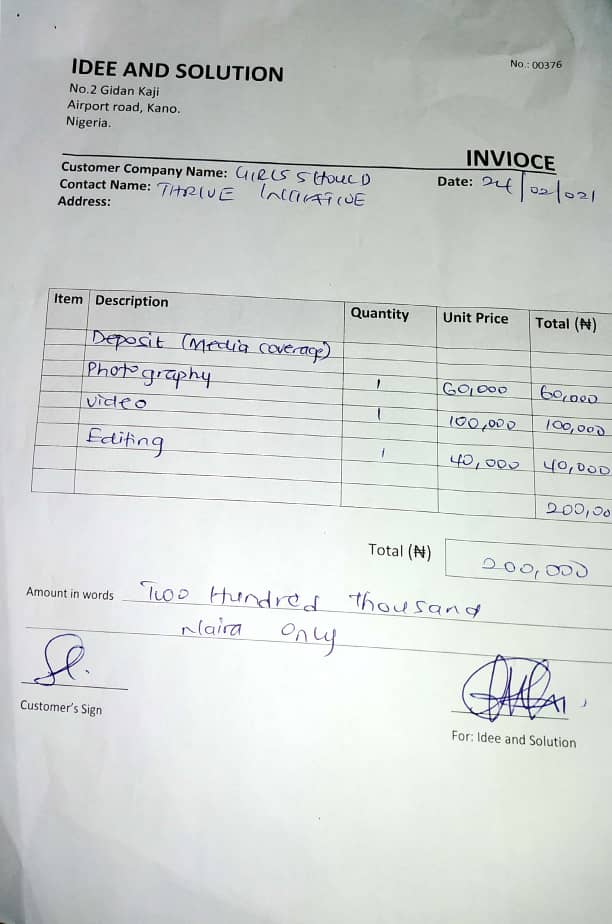 IDEE AND SOLUTION
No.: 00376
No.2 Gidan Kaji
Airport road, Kano.
Nigeria.
INVIOCE
Customer Company Name: GIRLS SHOULD
Date: 24/02/021
Contact Name: THRIVE INITIATIVE
Address:
Item Description Quantity Unit Price Total (₦)
Deposit (Media coverage)
Photography 1 60,000 60,000
video 1 100,000 100,000
Editing 1 40,000 40,000
200,00
Total (₦) 200,000
Amount in words Two Hundred thousand
Naira Only
Customer's Sign
For: Idee and Solution